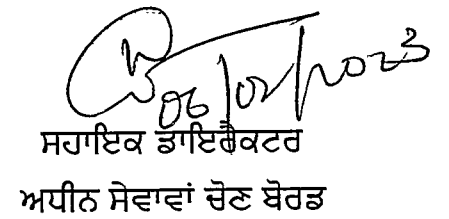 06/02/2023
ਸਹਾਇਕ ਡਾਇਰੈਕਟਰ
ਅਧੀਨ ਸੇਵਾਵਾਂ ਚੋਣ ਬੋਰਡ